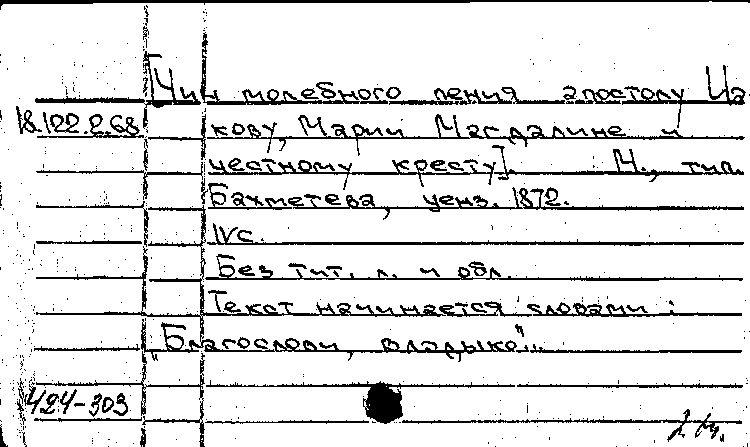 [Чин молебного пения апостолу Иа-
18.122.2.68 кову, Марии Магдалине и
честному кресту]. М., тип.
Бахметева, ценз. 1872.
IVс.
Без тит. л. и обл.
Текст начинается словами:
"Благослови, владыко"..
424-303